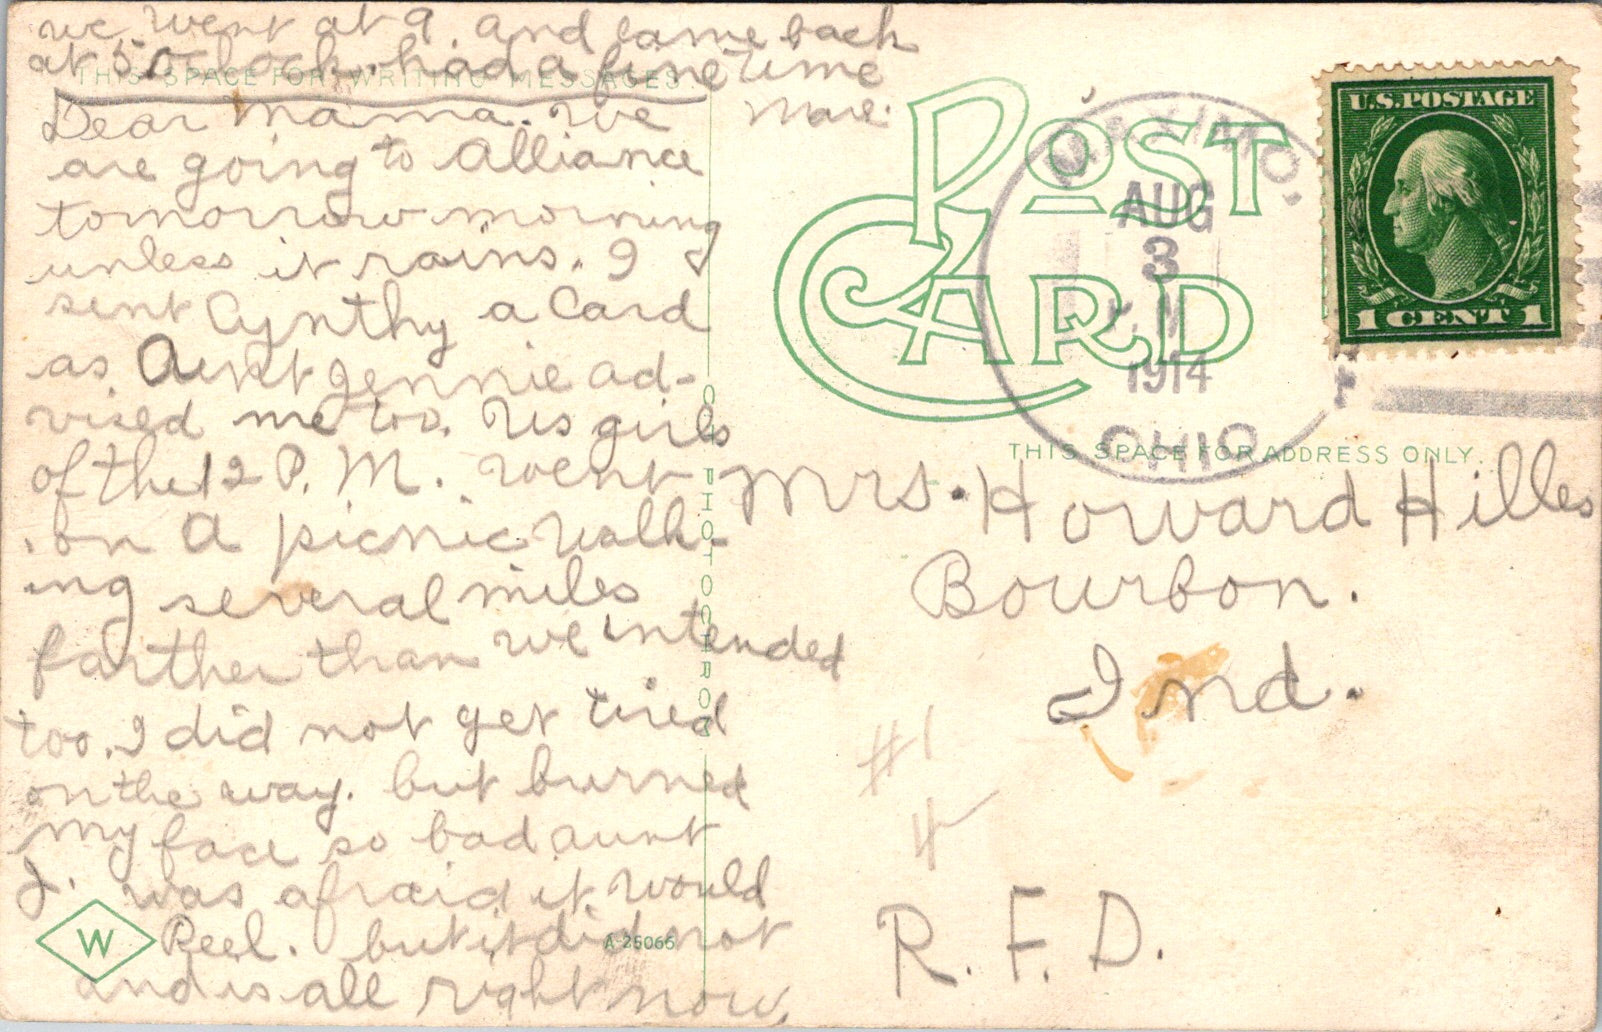 we went at 9. and came back
at 5 o'clock, had a fine time
Marie.
THIS SPACE FOR WRITING MESSAGES.
Dear Mama. We
are going to Alliance
tomorrow morning
unless it rains. I
sent Cynthy a Card
as Aunt Jennie ad-
vised me too. Us girls
of the 12 P. M. went
on a picnic walk-
ing several miles
farther than we intended
too. I did not get tired
on the way. but burned
my face so bad aunt
J. was afraid it would
Peel. but it did not
and is all right now.
W
A-25066
C.T. PHOTOCHROM
POST CARD
MAXIMO,
AUG
3
P.M.
1914
OHIO
U.S. POSTAGE
1 CENT 1
THIS SPACE FOR ADDRESS ONLY.
Mrs. Howard Hilles
Bourbon.
Ind.
#1
4
R. F. D.